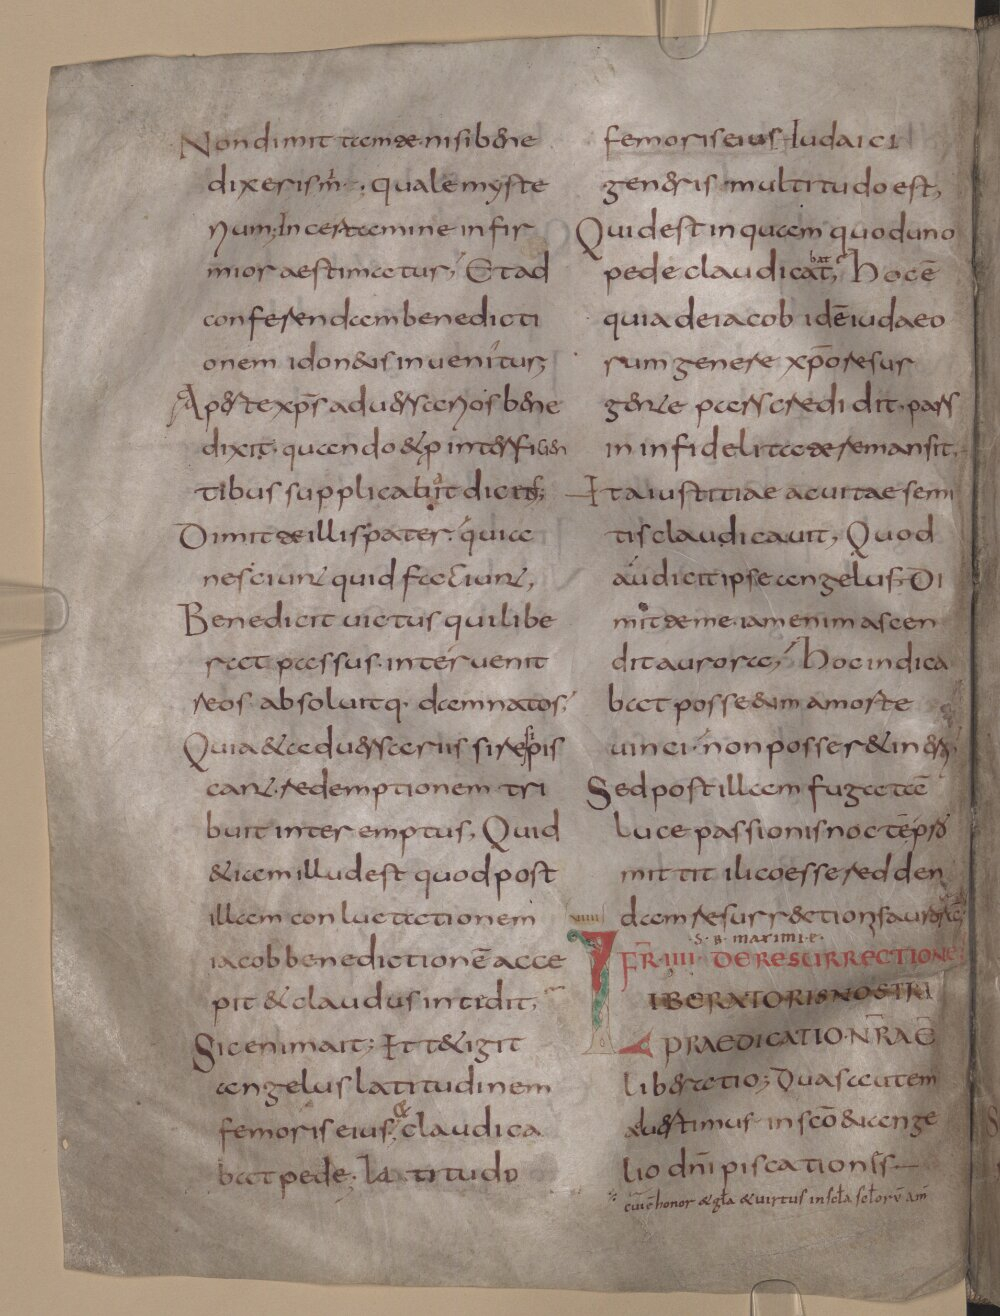 Non dimittam te nisi bene
dixeris m · quale myste
rium; In certamine infir
mior aestimatur; Et ad
conferendam benedicti
onem idoneus inuenitur;
Aperte xps aduersarios bene
dixit · quando & p interfici
tibus supplicabat dicens;
Dimitte illis pater · quia
nesciunt quid faciunt,
Benedicit uictus qui libe
rat passus · interuenit
reos absoluitq · damnatos;
Quia & aduersariis
cant · redemptionem tri
buit interemptus, Quid
etiam illud est quod post
illam conluctationem
iacob benedictionē acce
pit & claudus incidit,
Sic enim ait; It tetigit
angelus latitudinem
femoris eius, & claudica
bat pede · latitudo
femoris eius Iudaici
generis multitudo est,
Qui dest in quam quod uno
pede claudicat, Hoc ē
quia de iacob id ē iudaeo
rum genere xpo resur
gente pars credidit · pars
in infidelitate remansit,
Ita iustitiae a cuitae semi
tis claudicauit, Quod
au dicit ipse angelus · Di
mitte me · iam enim ascen
dit aurora; Hoc indica
bat posse & iam a morte
uinci · non posse
Sed post illam fugatā
luce passionis noctē
mittit ilico esse redden
dam resurrectionis
uiiii
s · b · maximi · e ·
FR IIII DE RESURRECTIONE
LIBERATORIS NOSTRI
PRAEDICATIO NRAE
liberatio; Duas autem
audistimus in scō euange
lio dni piscationis
cui ē honor & gla & uirtus in scla sclorū am